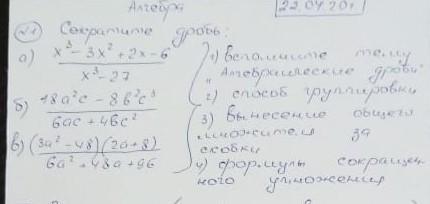 Алгебра
22.04.20г
№1 Сократите дробь:
а) x³ - 3x² + 2x - 6 / x³ - 27
б) 18a²c - 8b²c³ / 6ac + 4bc²
в) (3a² - 48)(2a + 8) / 6a² + 48a + 96
1) вспомните тему
"Алгебраические дроби"
2) способ группировки
3) вынесение общего
множителя за
скобки
4) формулы сокращен-
ного умножения